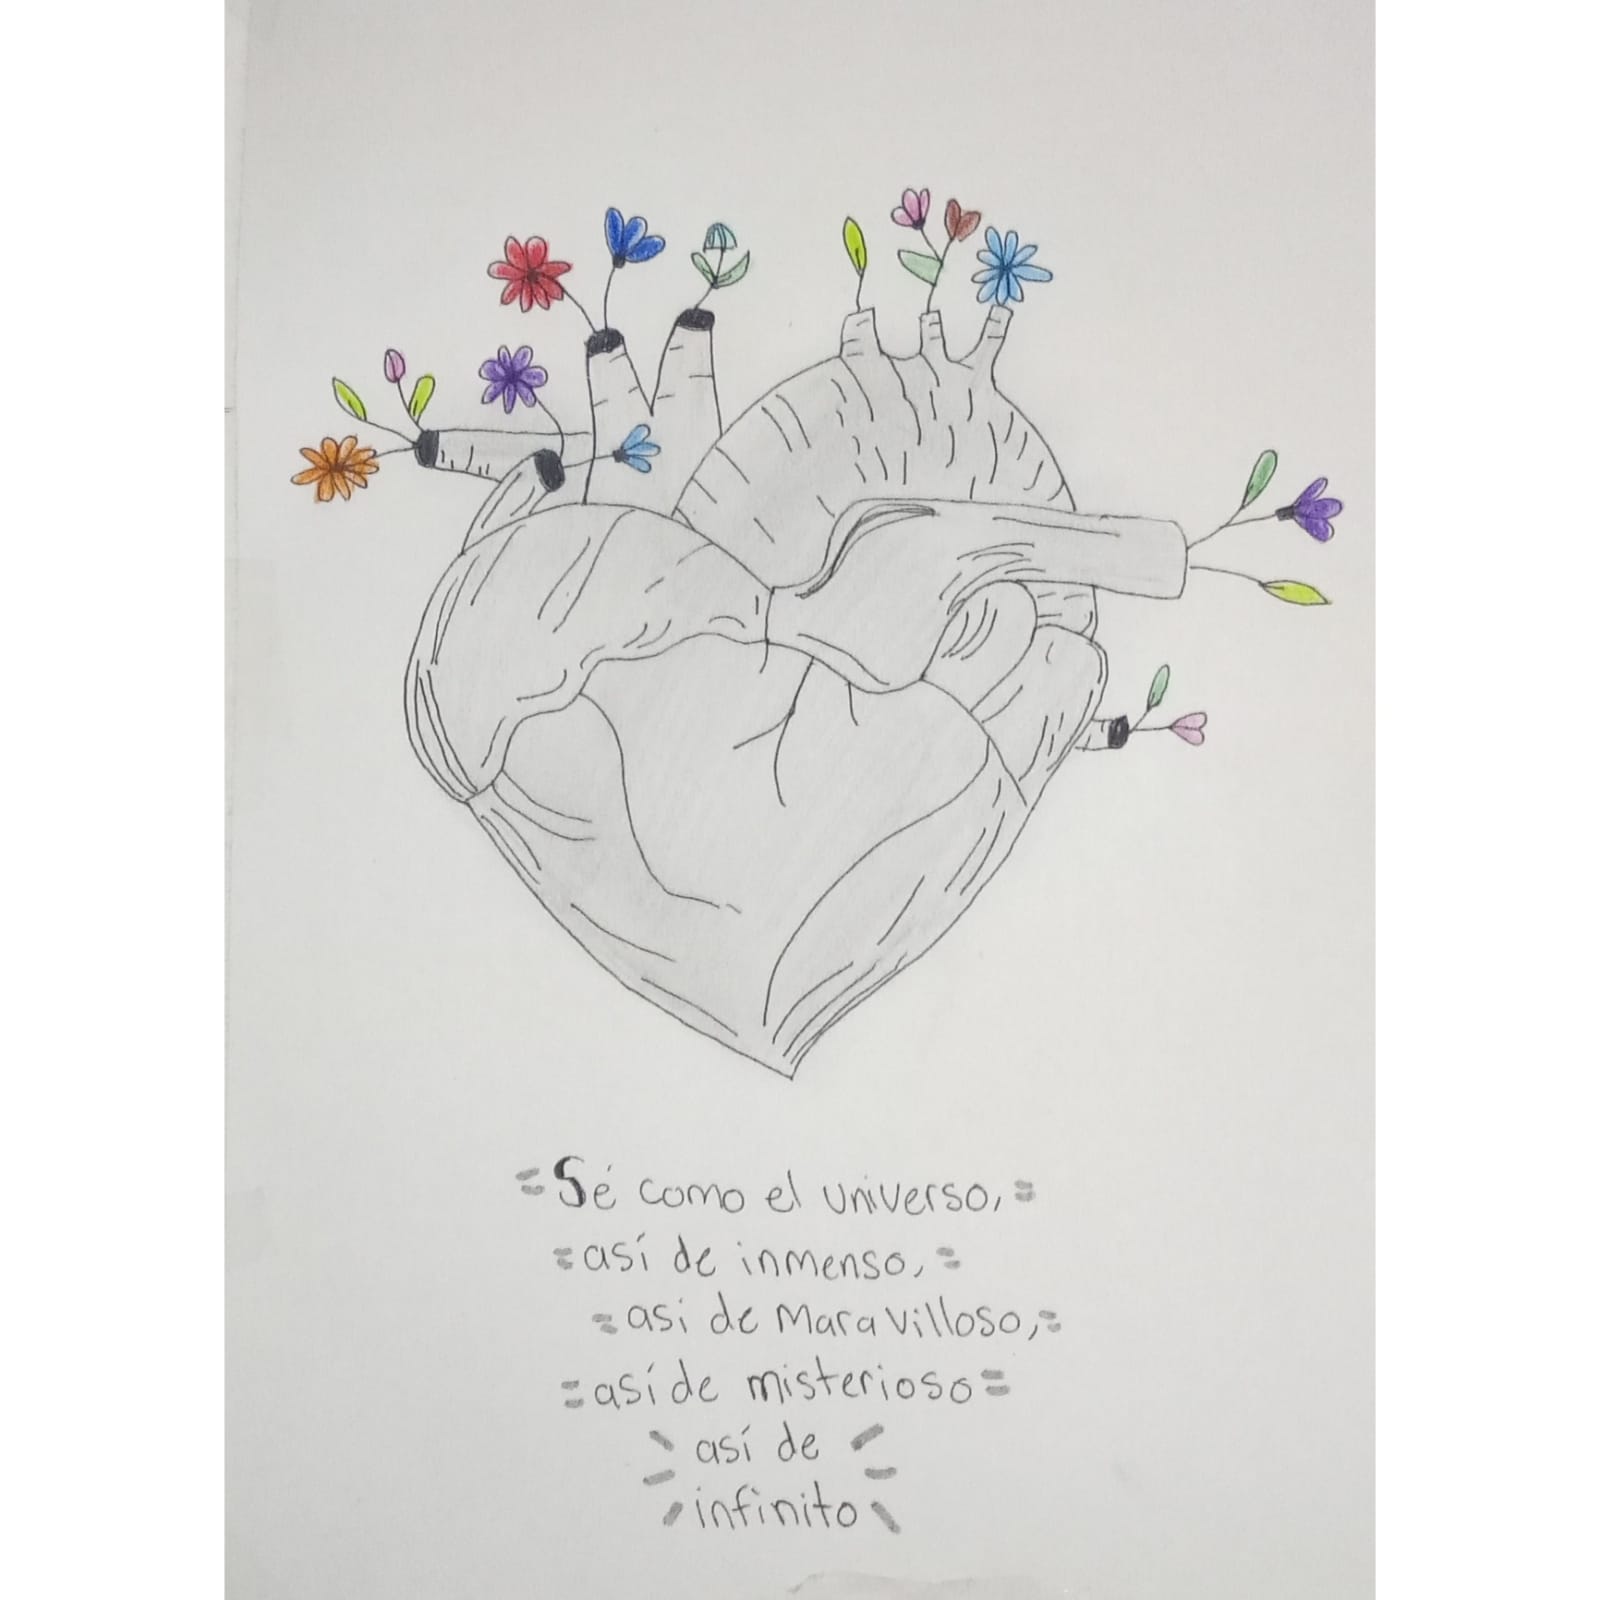 Sé como el universo,
así de inmenso,
asi de maravilloso,
así de misterioso
así de
infinito